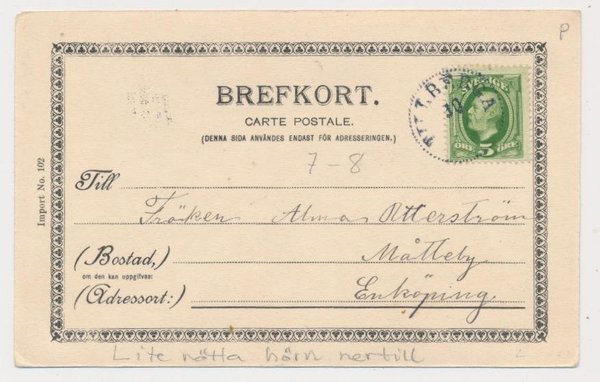 P
BREFKORT.
CARTE POSTALE.
(DENNA SIDA ANVÄNDES ENDAST FÖR ADRESSERINGEN.)
SVERIGE
30
ÖRE 5 ÖRE
7-8
Till
Fröken Alma Otterström
(Bostad,)
om den kan uppgifvas:
Måtteby
(Adressort:)
Enköping
Import No. 102
Lite nötta hörn nertill